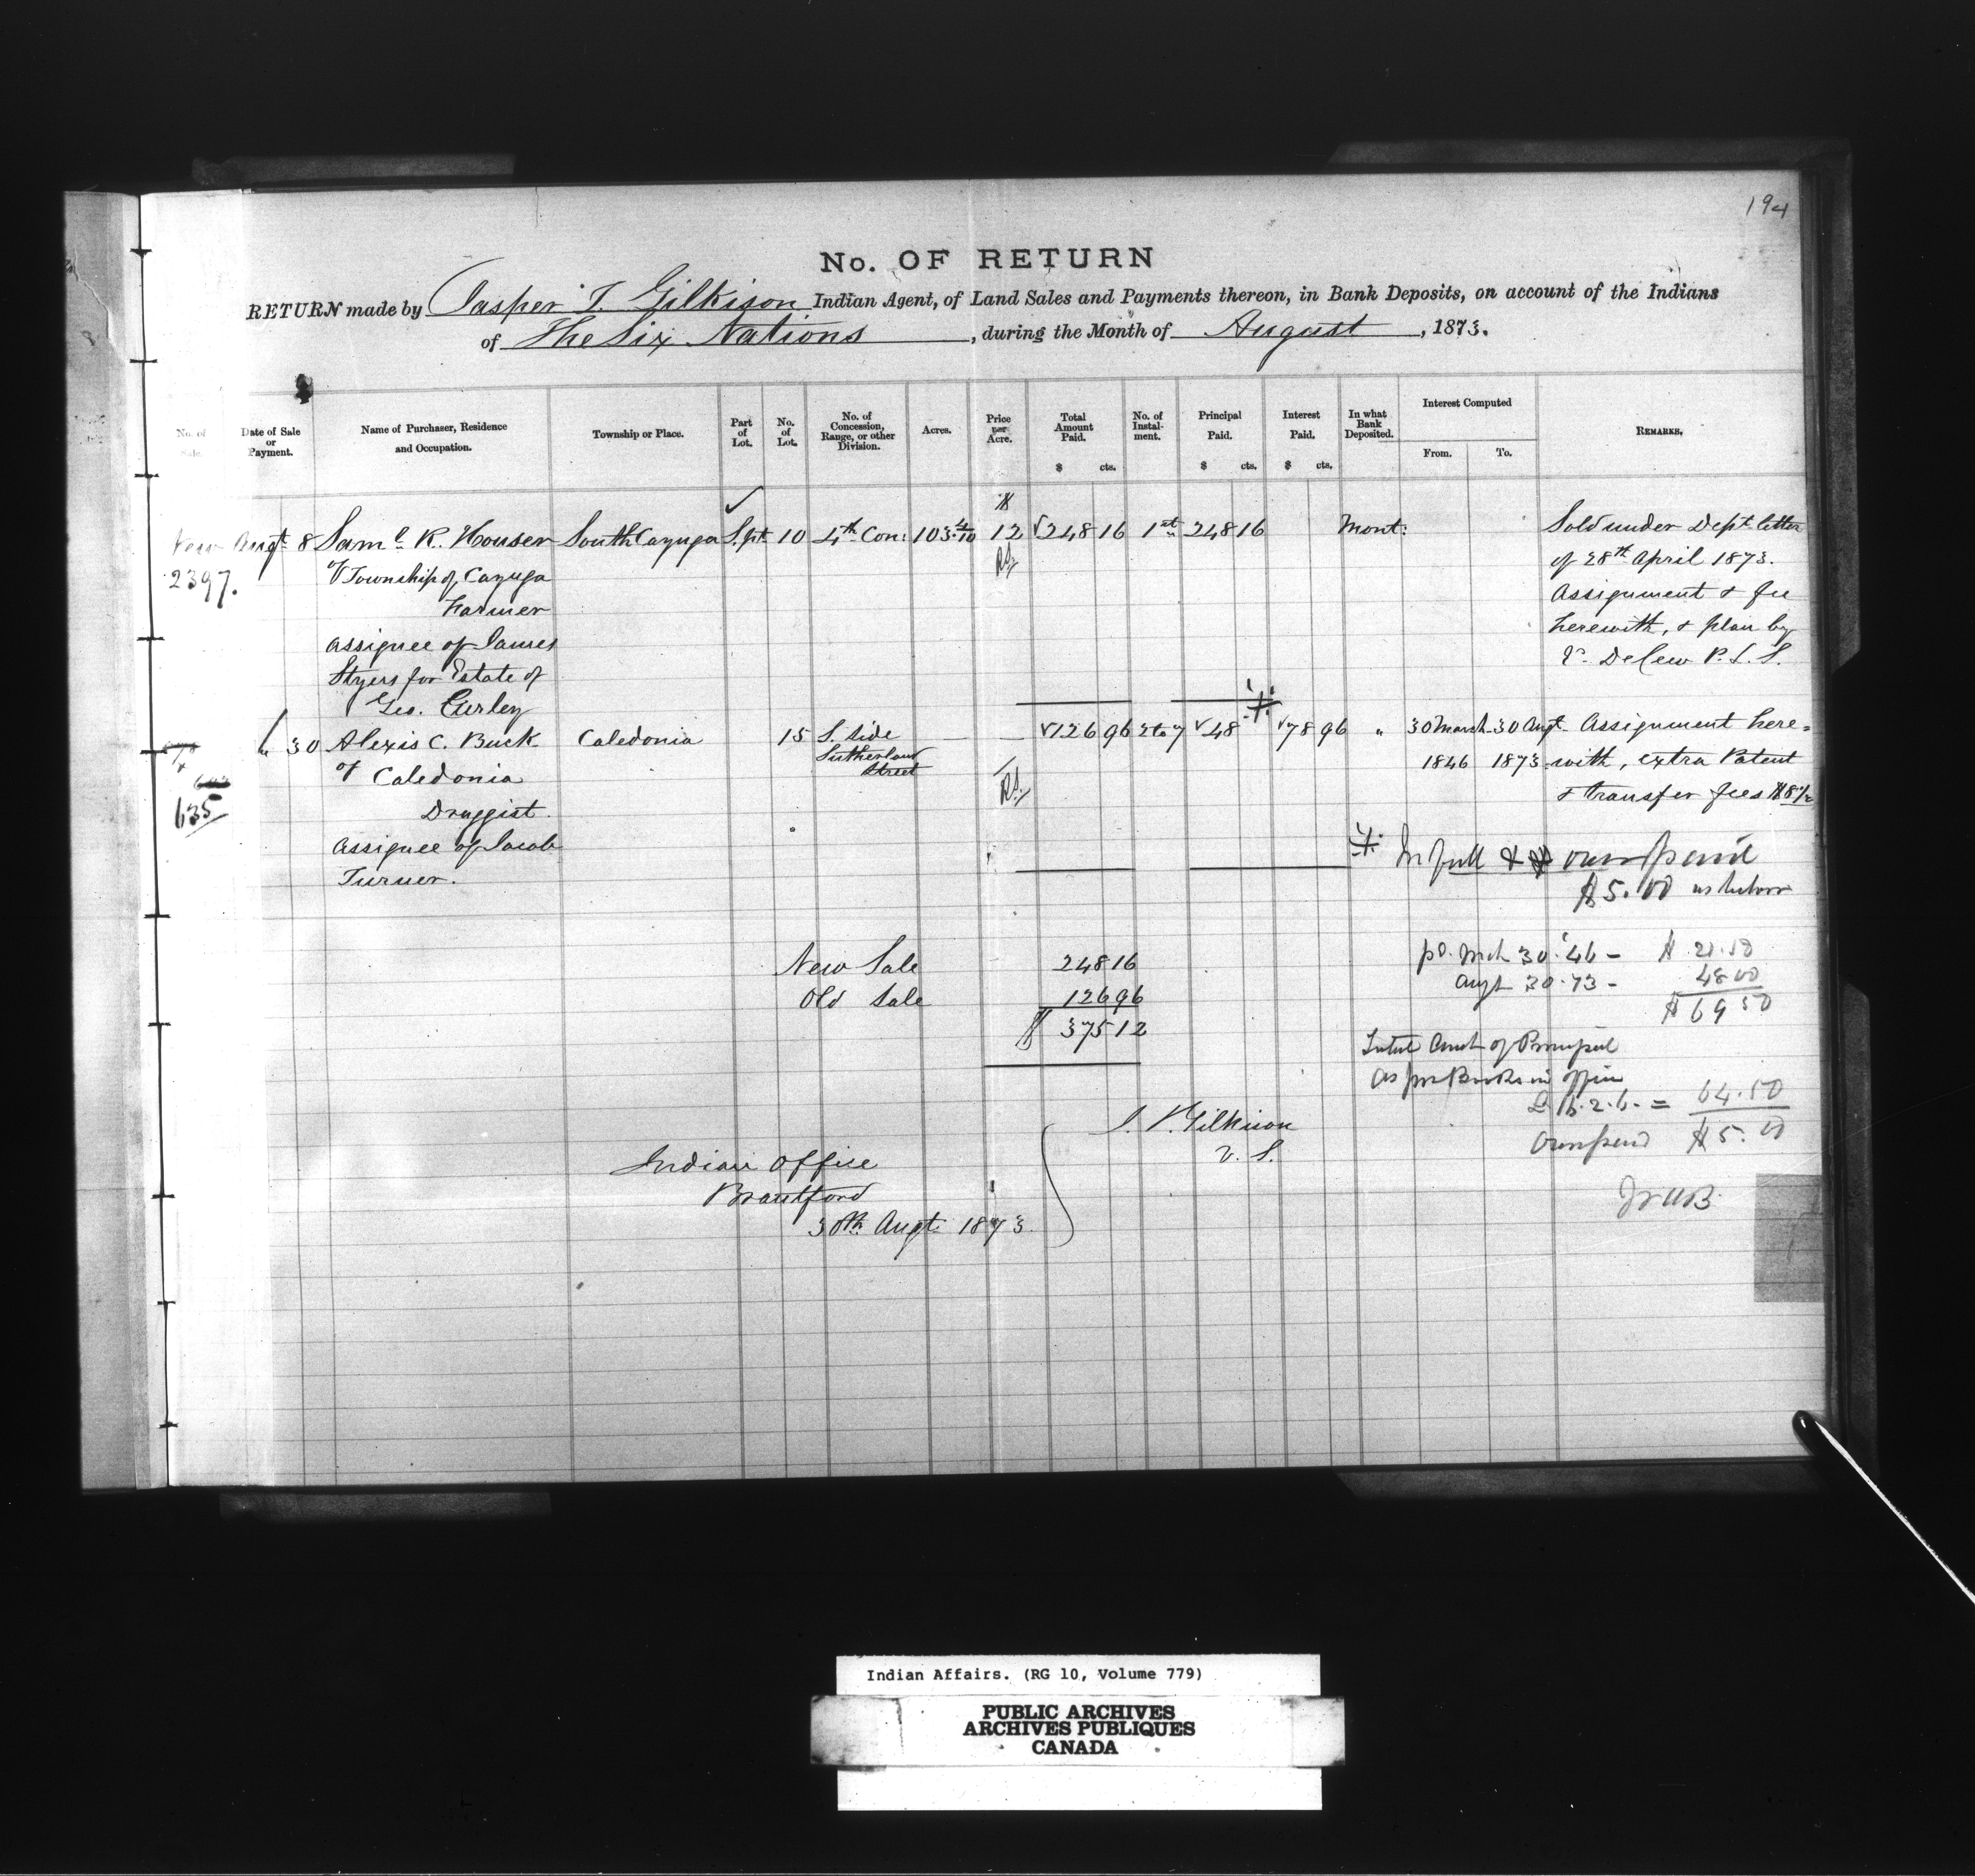 194
No. OF RETURN
RETURN made by Jasper T. Gilkison Indian Agent, of Land Sales and Payments thereon, in Bank Deposits, on account of the Indians
of The Six Nations, during the Month of August, 1873.
No. of Sale. Date of Sale or Payment. Name of Purchaser, Residence and Occupation. Township or Place. Part of Lot. No. of Lot. No. of Concession, Range, or other Division. Acres. Price per Acre. Total Amount Paid. $ cts. No. of Instalment. Principal Paid. $ cts. Interest Paid. $ cts. In what Bank Deposited. Interest Computed From. To. REMARKS.
New Augt 8 Saml. R. Houser South Cayuga S. pt 10 4th Con: 103 4/10 $ 12 248 16 1st 248 16 Mont: Sold under Dept letter
2397. of Township of Cayuga of 28th April 1873.
Farmer Assignment & fee
assignee of James herewith, & plan by
Styers for Estate of DeCew P. L. S.
Geo. Curley
" 30 Alexis C. Buck Caledonia 15 S. Side — — 126 96 2 to 7 48 78 96 " 30 March 30 Augt Assignment here=
of Caledonia Sutherland Street 1846 1873 with, extra Patent
635 Druggist. & transfer fees $8 1/2
Assignee of Jacob In full & overpaid
Turner. $5.00 as below
New Sale 248 16 pd. Mch 30 '46 - $ 21.50
Old Sale 126 96 Augt 30 73 - 48 00
$ 375 12 $ 69 50
Total Amt of Principal
as per Books in office
= 64.50
Overpaid $5.00
J. T. Gilkison
V. S.
Indian Office
Brantford
30th Augt 1873
Indian Affairs. (RG 10, Volume 779)
PUBLIC ARCHIVES
ARCHIVES PUBLIQUES
CANADA